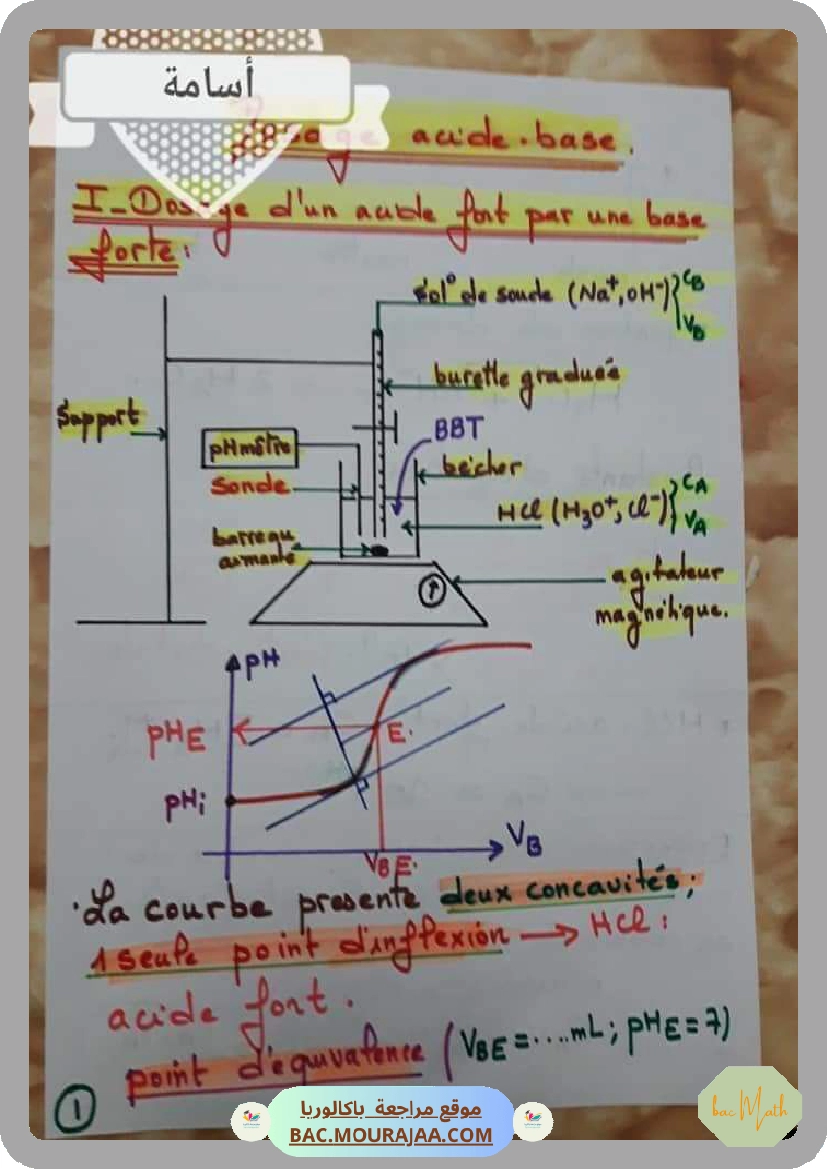 أسامة
Dosage acide.base.
I_① Dosage d'un acide fort par une base
forte:
Sol° de soude (Na⁺, OH⁻) } CB
VB
burette graduée
Support
BBT
pHmètre
bécher
Sonde
HCl (H₃O⁺, Cl⁻) } CA
VA
barreau
aimanté
agitateur
magnétique.
pH
pHE
E.
pHi
VB
VBE.
. La courbe presente deux concavités;
1 seule point d'inflexion → HCl:
acide fort.
point d'équivalence (VBE = ....mL; pHE = 7)
①
موقع مراجعة باكالوريا
BAC.MOURAJAA.COM
bac Math